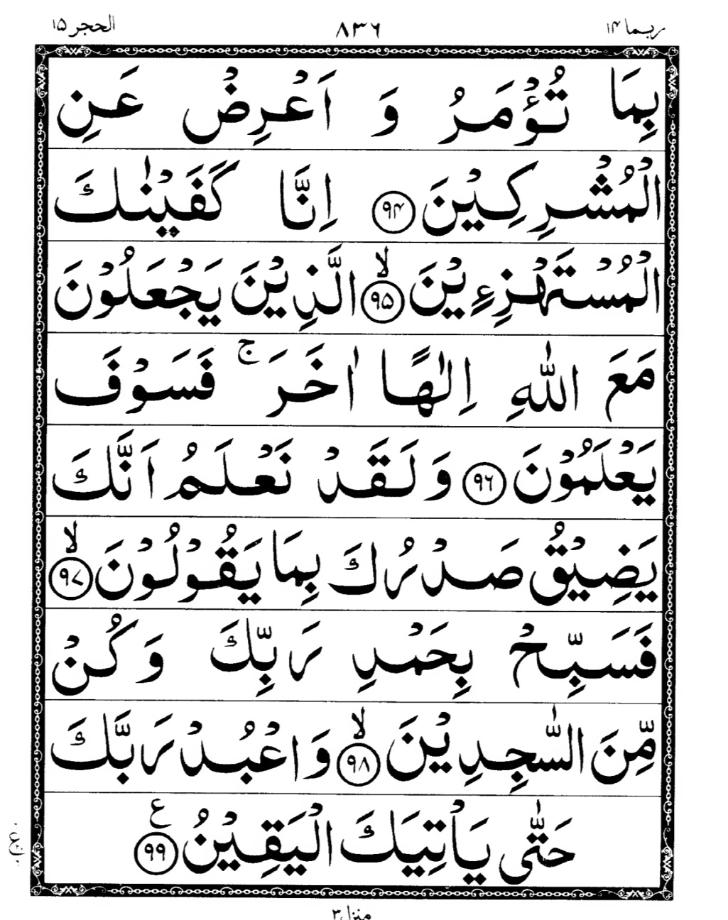 ربما ۱۴ ۸۳۶ الحجر ۱۵
بِمَا تُؤْمَرُ وَ اَعْرِضْ عَنِ
الْمُشْرِكِيْنَ ۹۴ اِنَّا كَفَيْنٰكَ
الْمُسْتَهْزِءِيْنَ ۙ۹۵ الَّذِيْنَ يَجْعَلُوْنَ
مَعَ اللّٰهِ اِلٰهًا اٰخَرَ ۚ فَسَوْفَ
يَعْلَمُوْنَ ۹۶ وَ لَقَدْ نَعْلَمُ اَنَّكَ
يَضِيْقُ صَدْرُكَ بِمَا يَقُوْلُوْنَ ۙ۹۷
فَسَبِّحْ بِحَمْدِ رَبِّكَ وَ كُنْ
مِّنَ السّٰجِدِيْنَ ۙ۹۸ وَ اعْبُدْ رَبَّكَ
حَتّٰى يَاْتِيَكَ الْيَقِيْنُ ع ۹۹
منزل ۳